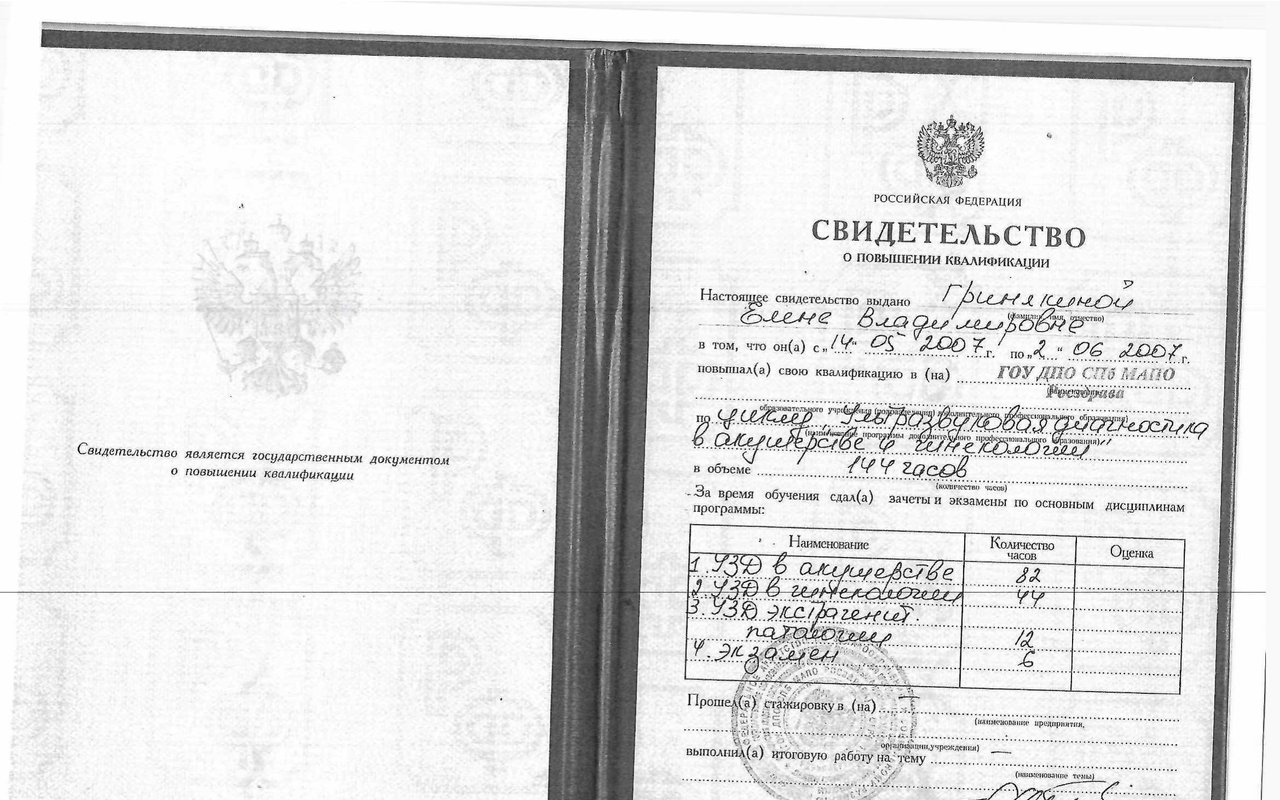 Свидетельство является государственным документом
о повышении квалификации
РОССИЙСКАЯ ФЕДЕРАЦИЯ
СВИДЕТЕЛЬСТВО
О ПОВЫШЕНИИ КВАЛИФИКАЦИИ
Настоящее свидетельство выдано Гринякиной
(фамилия, имя, отчество)
Елене Владимировне
в том, что он(а) с „14“ 05 2007 г. по „2“ 06 2007 г.
повышал(а) свою квалификацию в (на) ГОУ ДПО СПб МАПО
Росздрава
образовательного учреждения (подразделения) дополнительного профессионального образования)
по циклу "Ультразвуковая диагностика
(наименование программы дополнительного профессионального образования)
в акушерстве и гинекологии"
в объеме 144 часов
(количество часов)
За время обучения сдал(а) зачеты и экзамены по основным дисциплинам
программы:
Наименование Количество часов Оценка
1. УЗД в акушерстве 82
2. УЗД в гинекологии 44
3. УЗД экстрагенит.
патологии 12
4. экзамен 6
Прошел(а) стажировку в (на) —
(наименование предприятия,
организации, учреждения)
выполнил(а) итоговую работу на тему —
(наименование темы)